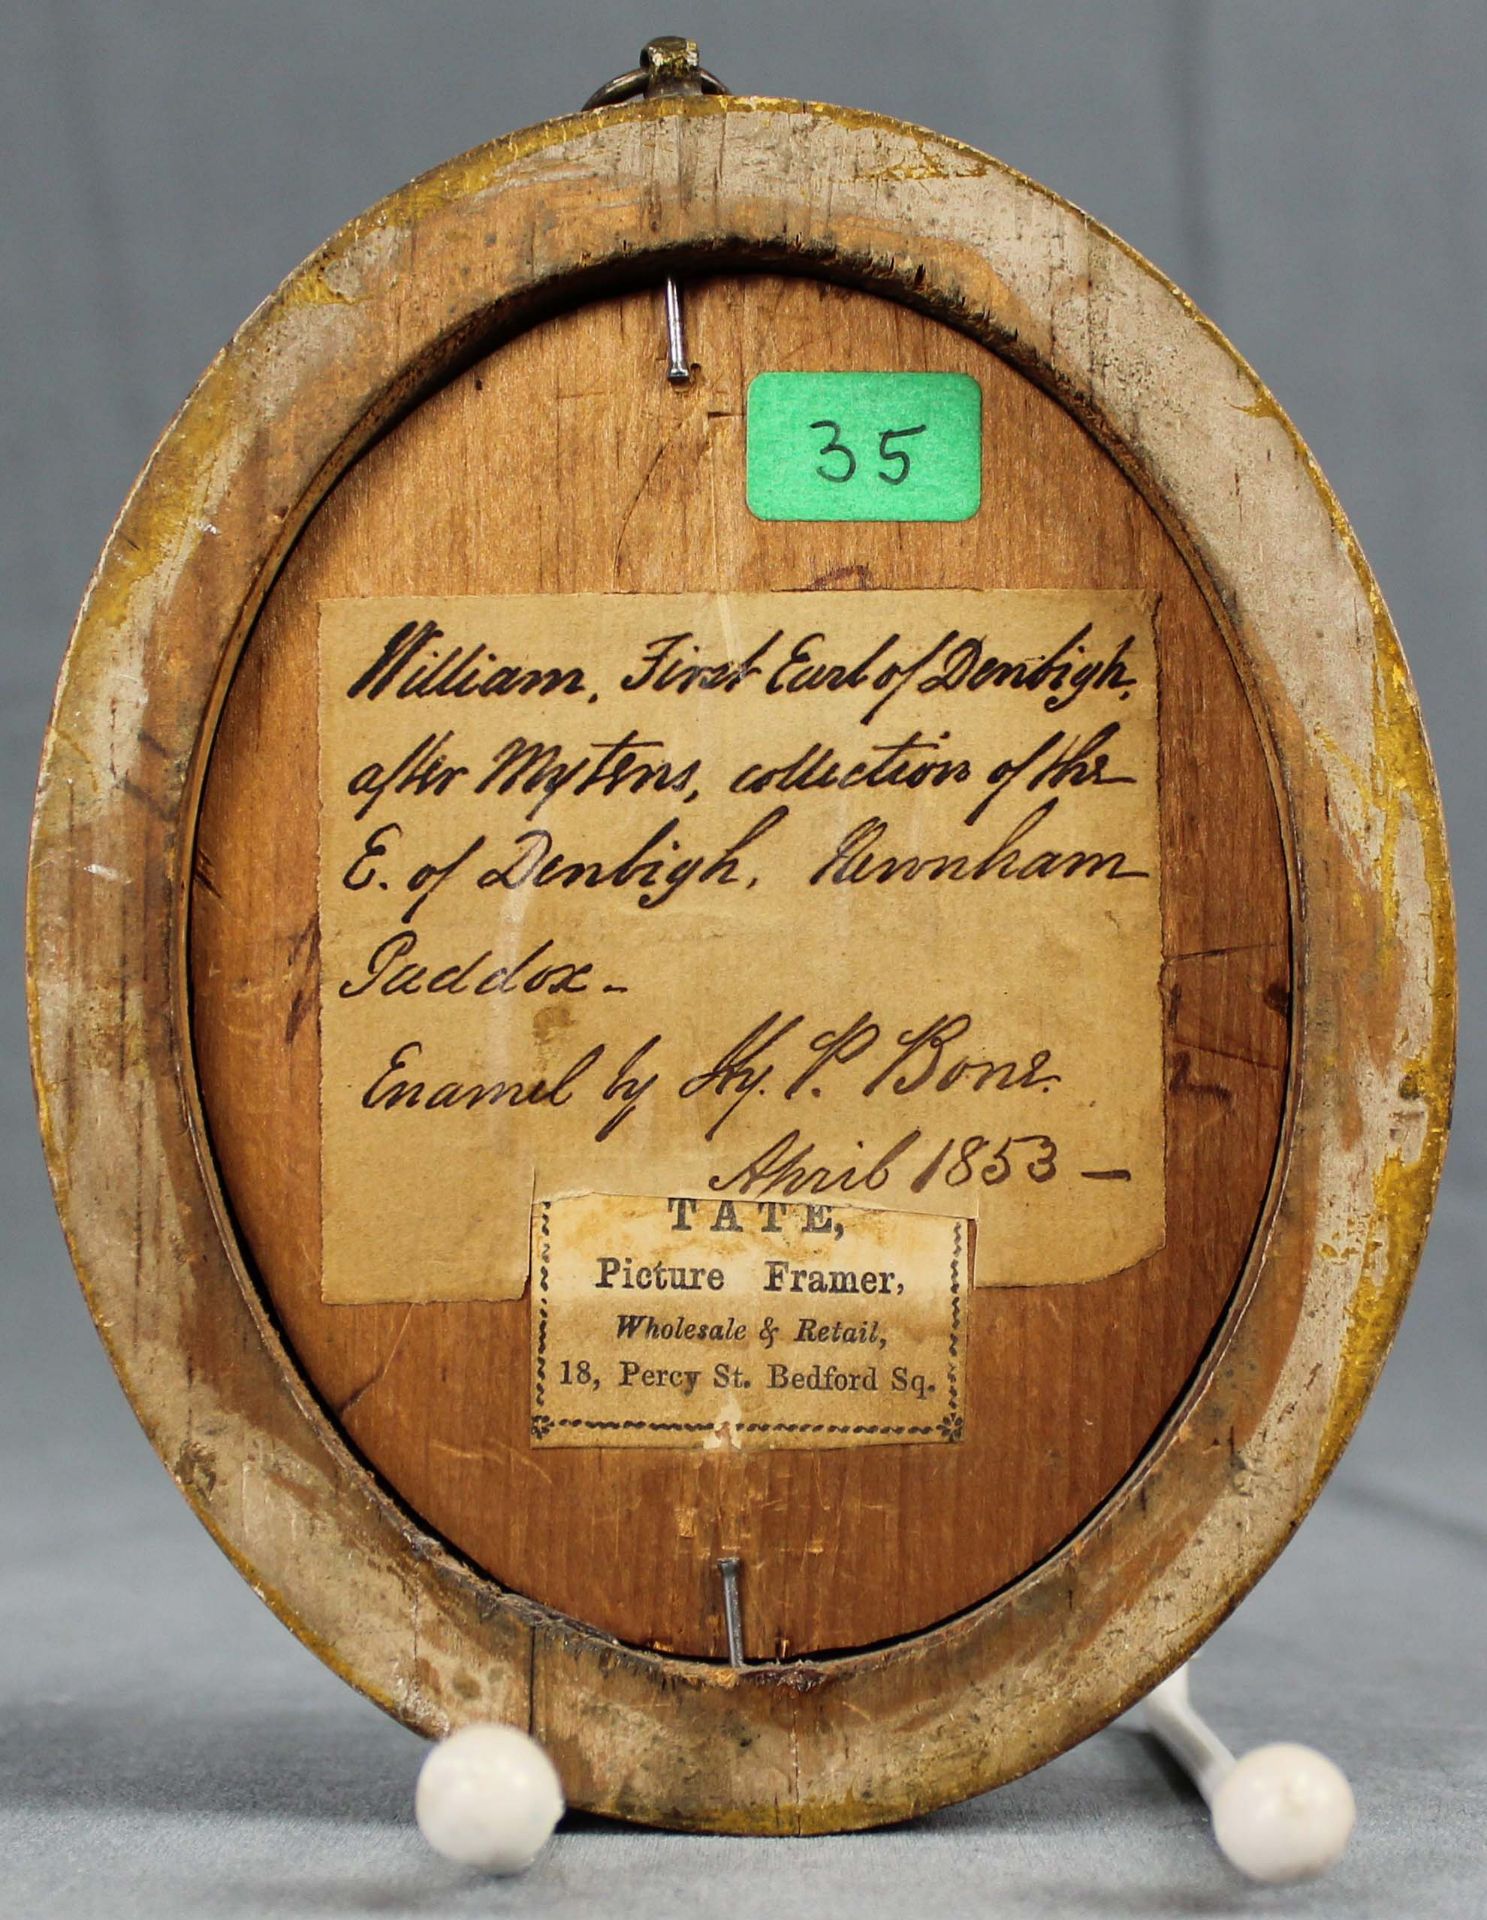 35
William, First Earl of Denbigh,
after Mytens, collection of the
E. of Denbigh, Newnham
Paddox -
Enamel by Hy. P. Bone.
April 1853 -
TATE,
Picture Framer,
Wholesale & Retail,
18, Percy St. Bedford Sq.